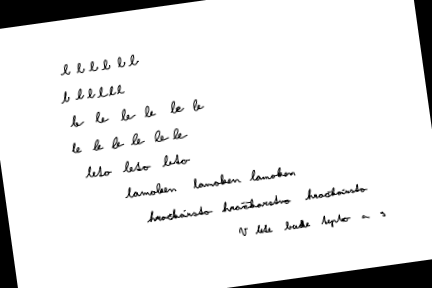 l l l l l l
l l l l l l
le le le le le le
le le le le le le
leto leto leto
lamohen lamohen lamohen
hračkárstvo hračkárstvo hračkárstvo
V lete bude teplo a s